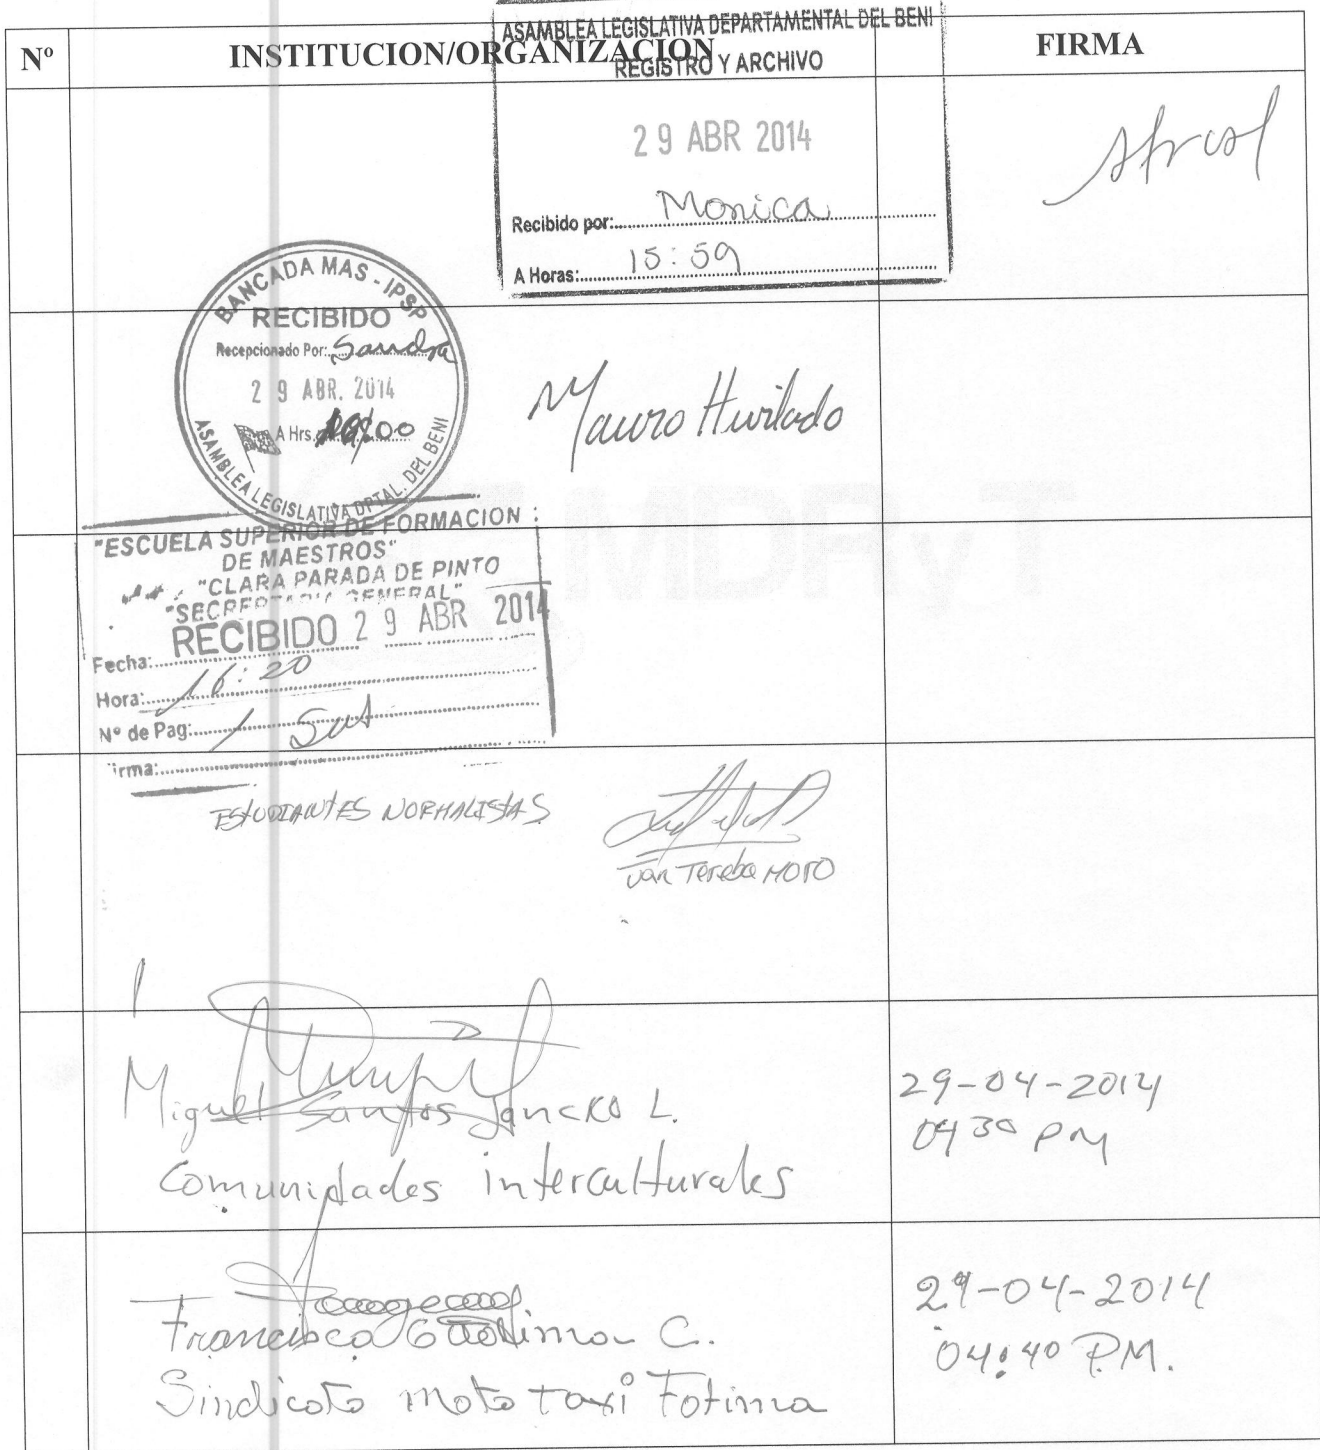 Nº INSTITUCION/ORGANIZACION FIRMA
ASAMBLEA LEGISLATIVA DEPARTAMENTAL DEL BENI
REGISTRO Y ARCHIVO
29 ABR 2014
Recibido por: Monica
A Horas: 15:59
BANCADA MAS - IPSP
RECIBIDO
Recepcionado Por: Sandra
29 ABR. 2014
A Hrs.
ASAMBLEA LEGISLATIVA DPTAL. DEL BENI
Mauro Hurtado
"ESCUELA SUPERIOR DE FORMACION
DE MAESTROS"
"CLARA PARADA DE PINTO
"SECRETARIA GENERAL"
RECIBIDO 29 ABR 2014
Fecha:
Hora: 16:20
Nº de Pag: 1
irma:
ESTUDIANTES NORMALISTAS
MDRyT
Miguel Santos Jancko L.
Comunidades interculturales
29-04-2014
04 30 PM
Francisco C.
Sindicato moto taxi Fatima
29-04-2014
04:40 P.M.